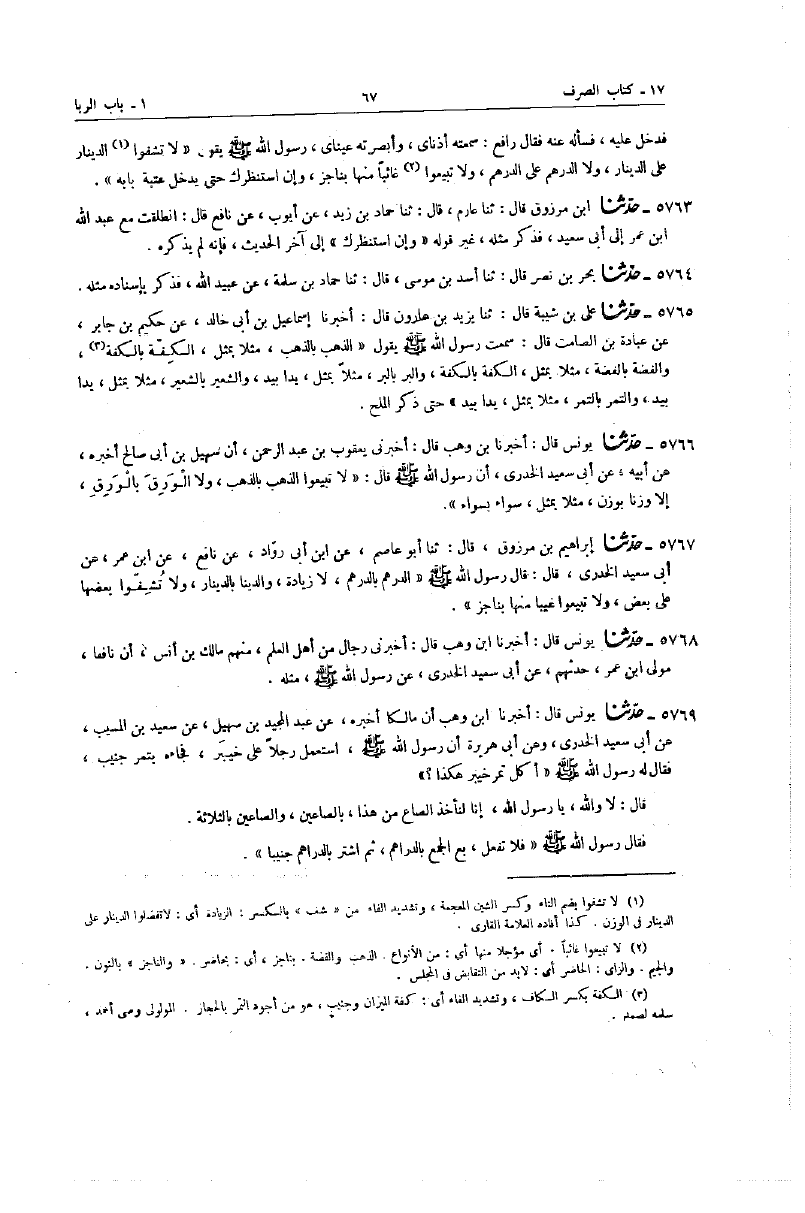 ١٧ - كتاب الصرف ٦٧ ١ - باب الربا
فدخل عليه ، فسأله عنه فقال رافع : سمعته أذناى ، وأبصرته عيناى ، رسول الله ﷺ يقول « لا تشفوا (١) الدينار
على الدينار ، ولا الدرهم على الدرهم ، ولا تبيعوا (٢) غائباً منها بناجز ، وإن استنظرك حتى يدخل عتبة بابه » .
٥٧٦٣ - حدّثنا ابن مرزوق قال : ثنا عارم ، قال : ثنا حماد بن زيد ، عن أيوب ، عن نافع قال : انطلقت مع عبد الله
ابن عمر إلى أبى سعيد ، فذكر مثله ، غير قوله « وإن استنظرك » إلى آخر الحديث ، فإنه لم يذكره .
٥٧٦٤ - حدّثنا بحر بن نصر قال : ثنا أسد بن موسى ، قال : ثنا حماد بن سلمة ، عن عبيد الله ، فذكر بإسناده مثله .
٥٧٦٥ - حدّثنا على بن شيبة قال : ثنا يزيد بن هارون قال : أخبرنا إسماعيل بن أبى خالد ، عن حكيم بن جابر ،
عن عبادة بن الصامت قال : سمعت رسول الله ﷺ يقول « الذهب بالذهب ، مثلا بمثل ، الكِفّة بالكفة(٣) ،
والفضة بالفضة ، مثلا بمثل ، الكفة بالكفة ، والبر بالبر ، مثلاً بمثل ، يدا بيد ، والشعير بالشعير ، مثلا بمثل ، يدا
بيد ، والتمر بالتمر ، مثلا بمثل ، يدا بيد » حتى ذكر الملح .
٥٧٦٦ - حدّثنا يونس قال : أخبرنا بن وهب قال : أخبرنى يعقوب بن عبد الرحمن ، أن سهيل بن أبى صالح أخبره ،
عن أبيه ، عن أبى سعيد الخدرى ، أن رسول الله ﷺ قال : « لا تبيعوا الذهب بالذهب ، ولا الْوَرِقَ بالْوَرِقِ ،
إلا وزنا بوزن ، مثلا بمثل ، سواء بسواء ».
٥٧٦٧ - حدّثنا إبراهيم بن مرزوق ، قال : ثنا أبو عاصم ، عن ابن أبى روّاد ، عن نافع ، عن ابن عمر ، عن
أبى سعيد الخدرى ، قال : قال رسول الله ﷺ « الدرهم بالدرهم ، لا زيادة ، والدينا بالدينار ، ولا تُشِفّوا بعضها
على بعض ، ولا تبيعوا غيبا منها بناجز » .
٥٧٦٨ - حدّثنا يونس قال : أخبرنا ابن وهب قال : أخبرنى رجال من أهل العلم ، منهم مالك بن أنس ، أن نافعا ،
مولى ابن عمر ، حدثهم ، عن أبى سعيد الخدرى ، عن رسول الله ﷺ ، مثله .
٥٧٦٩ - حدّثنا يونس قال : أخبرنا ابن وهب أن مالكا أخبره ، عن عبد المجيد بن سهيل ، عن سعيد بن المسيب ،
عن أبى سعيد الخدرى ، وعن أبى هريرة أن رسول الله ﷺ ، استعمل رجلاً على خيبَر ، فجاءه بتمر جنيب ،
فقال له رسول الله ﷺ « أكل تمر خيبر هكذا ؟»
قال : لا والله ، يا رسول الله ، إنا لنأخذ الصاع من هذا ، بالصاعين ، والصاعين بالثلاثة .
فقال رسول الله ﷺ « فلا تفعل ، بع الجمع بالدراهم ، ثم اشتر بالدراهم جنيبا » .
(١) لا تشفوا بضم التاء وكسر الشين المعجمة ، وتشديد الفاء من « شف » بالكسر : الزيادة أى : لاتفضلوا الدينار على
الدينار فى الوزن . كذا أفاده العلامة القارى .
(٢) لا تبيعوا غائباً . أى مؤجلا منها أى : من الأنواع . الذهب والفضة . بناجز ، أى : بحاضر . « والناجز » بالنون .
والجيم . والزاى : الحاضر أى : لابد من التقابض فى المجلس .
(٣) الكفة بكسر الكاف ، وتشديد الفاء أى : كفة الميزان وجنيب ، هو من أجود التمر بالحجاز . المولوى وصى أحمد ،
سلمه لصمد .